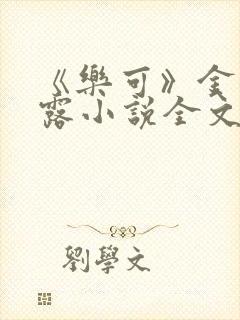 《樂可》金
露小説全文
劉學文